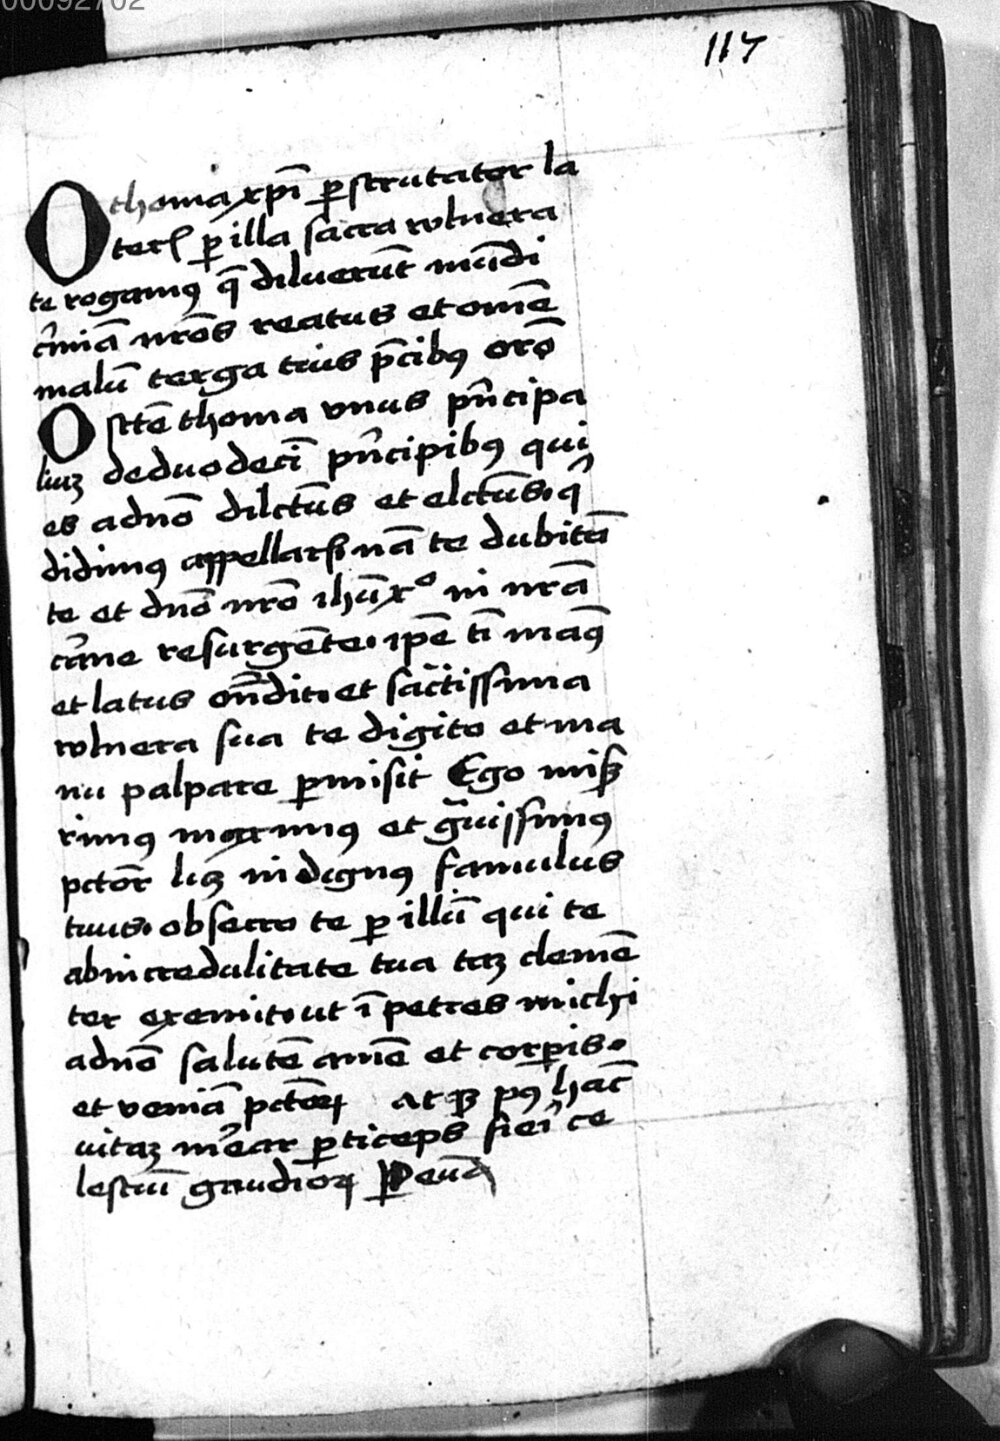 00092702
117
O thoma xpī ꝑscrutator la
terꝭ ꝑ illa sacra volnera
te rogamꝰ q̄ diluerūt mūdi
c̑miā nrōs reatus et omē
malū terga tuis p̄cibꝰ orō
O sctē thoma vnus pn̑cipa
liuꝫ deduodecī pn̑cipibꝰ qui
es adnō dilctūs et elctūs. q̑
didimꝰ appellarꝭ nā te dubitā
te et dnō nrō ihū xº in nrā
car̄ne resurgēte. ipē tī manꝰ
et latus on̄dit. et sac̄tissima
volnera sua te digito et ma
nu palpare ꝑmisit Ego misẽ
rimꝰ maximꝰ et gͣuissimꝰ
pctōr licꝫ indignꝰ famulus
tuus. obsecro te ꝑ illū qui te
abincredulitate tua taꝫ clemē
ter exemit. ut īpetres michi
adnō salutē amē et corꝑis.
et veniā pctōꝝ at qꝫ pꝰ hāc
uitaꝫ me̓ar ꝑticeps fiei̓ ce
lestiū gaudioꝝ P eūd